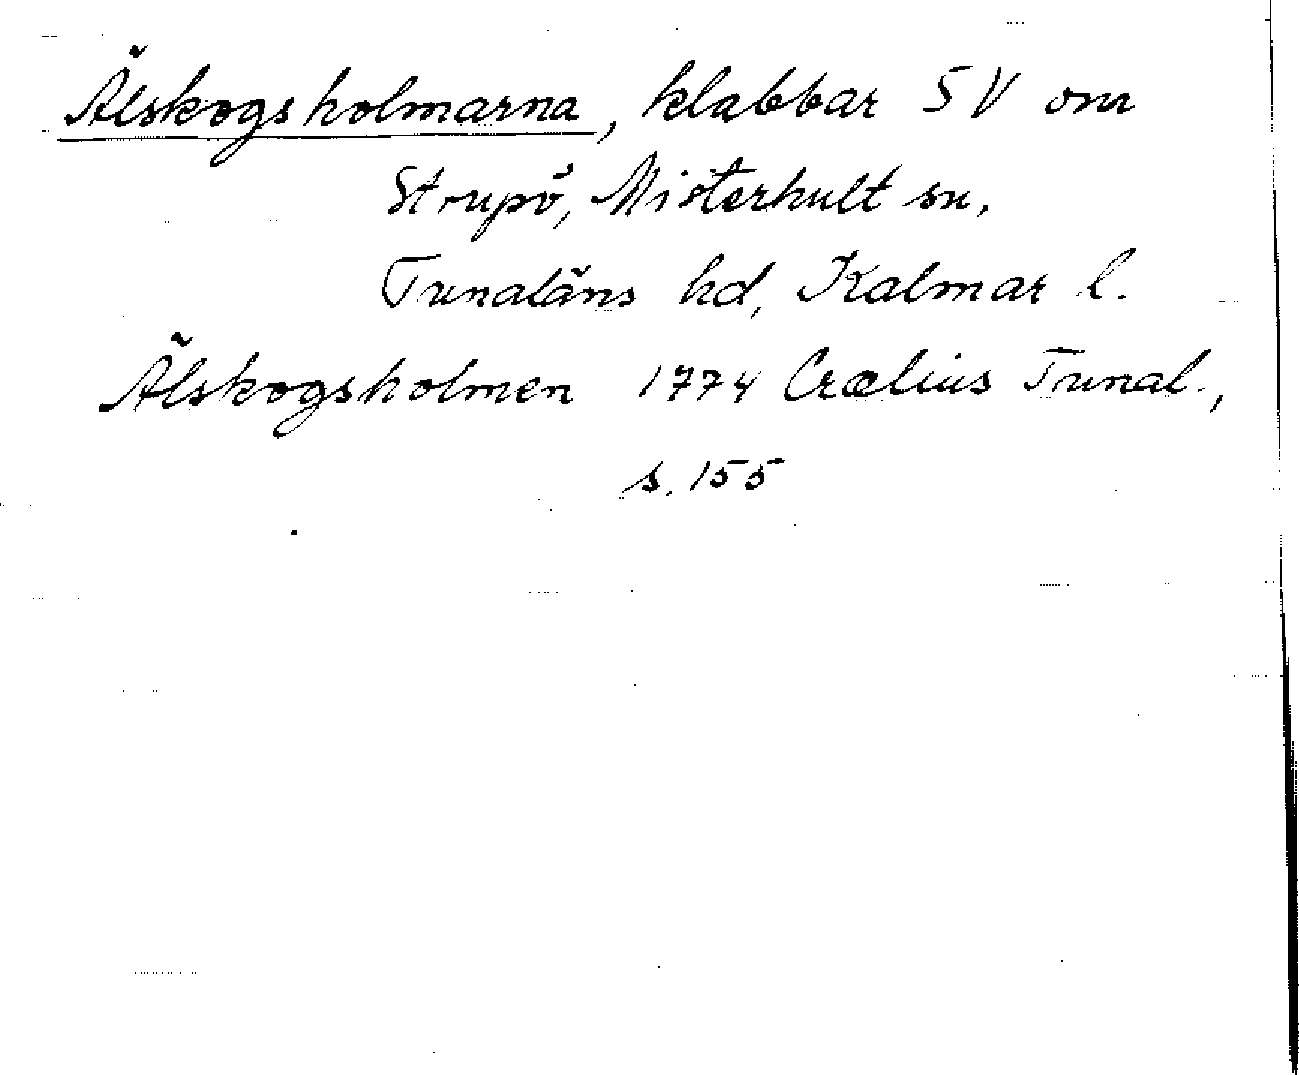 Älskogsholmarna, klabbar SV om
Strupö, Misterhult sn,
Tunaläns hd, Kalmar l.
Älskogsholmen 1774 Crælius Tunal.,
s. 155